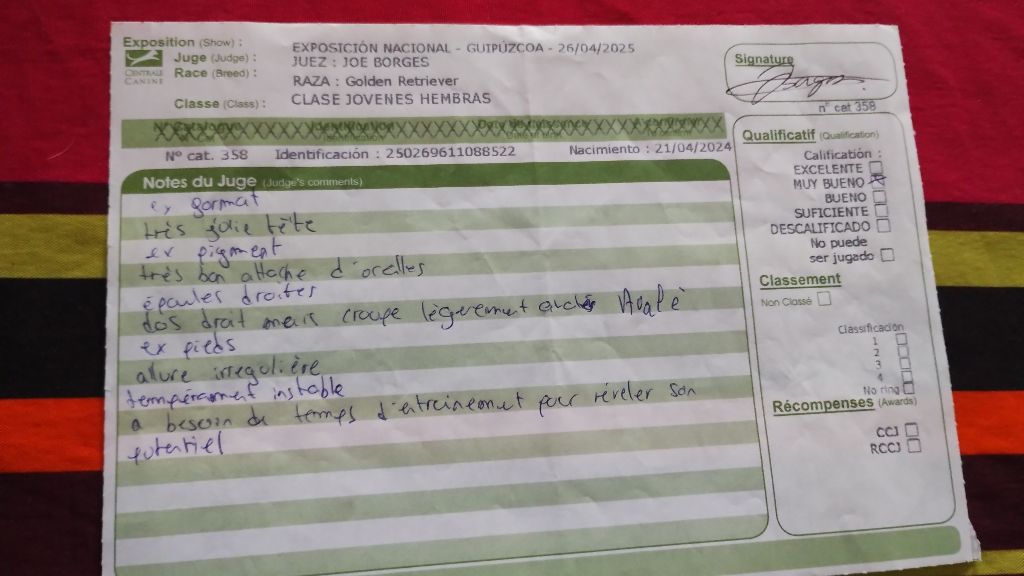 Exposition (Show) :
EXPOSICIÓN NACIONAL - GUIPÚZCOA - 26/04/2025
Juge (Judge) :
JUEZ : JOE BORGES
Race (Breed) :
RAZA : Golden Retriever
Classe (Class) :
CLASE JOVENES HEMBRAS
CENTRALE
CANINE
Signature
n° cat 358
Nº cat. 358 Identificación : 250269611088522 Nacimiento : 21/04/2024
Notes du Juge (Judge's comments)
ex format
très jolie tête
ex pigment
très bon attache d'oreilles
épaules droites
dos droit mais croupe légèrement Avalé
ex pieds
allure irregulière
tempérament instable
a besoin de temps d'entreinement pour réveler son
potentiel
Qualificatif (Qualification)
Calification :
EXCELENTE
MUY BUENO
BUENO
SUFICIENTE
DESCALIFICADO
No puede
ser jugado
Classement
Non Classé
Classificación
1
2
3
4
No ring
Récompenses (Awards)
CCJ
RCCJ